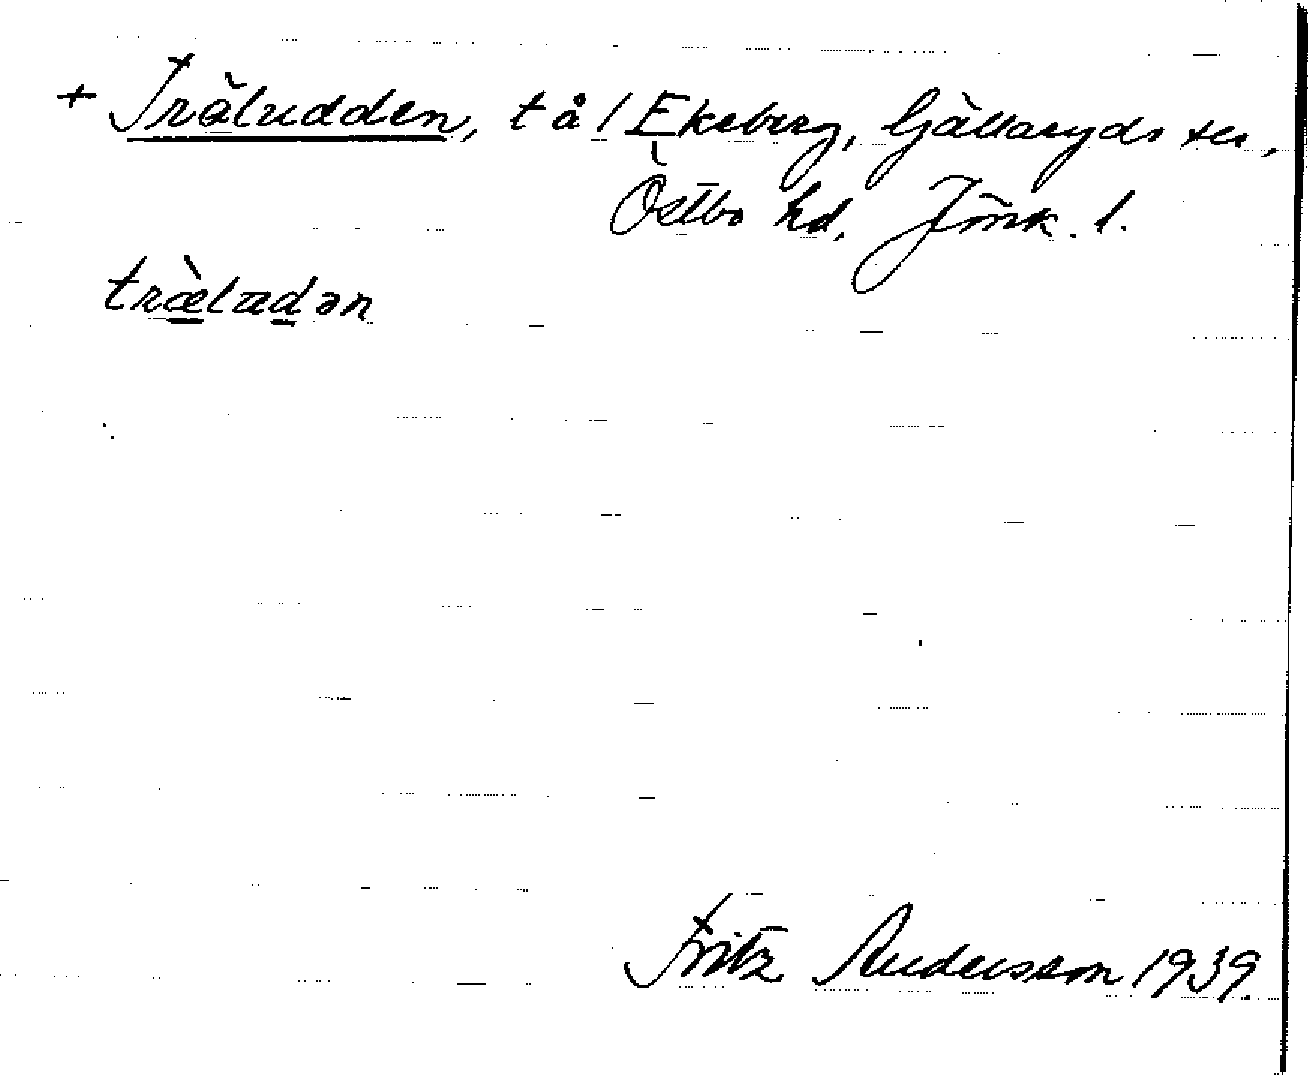 + Träludden, t å / Ekeberg, Gällaryds sn,
Östbo hd, Jönk. l.
trælɯdən
Fritz Andersson 1939.